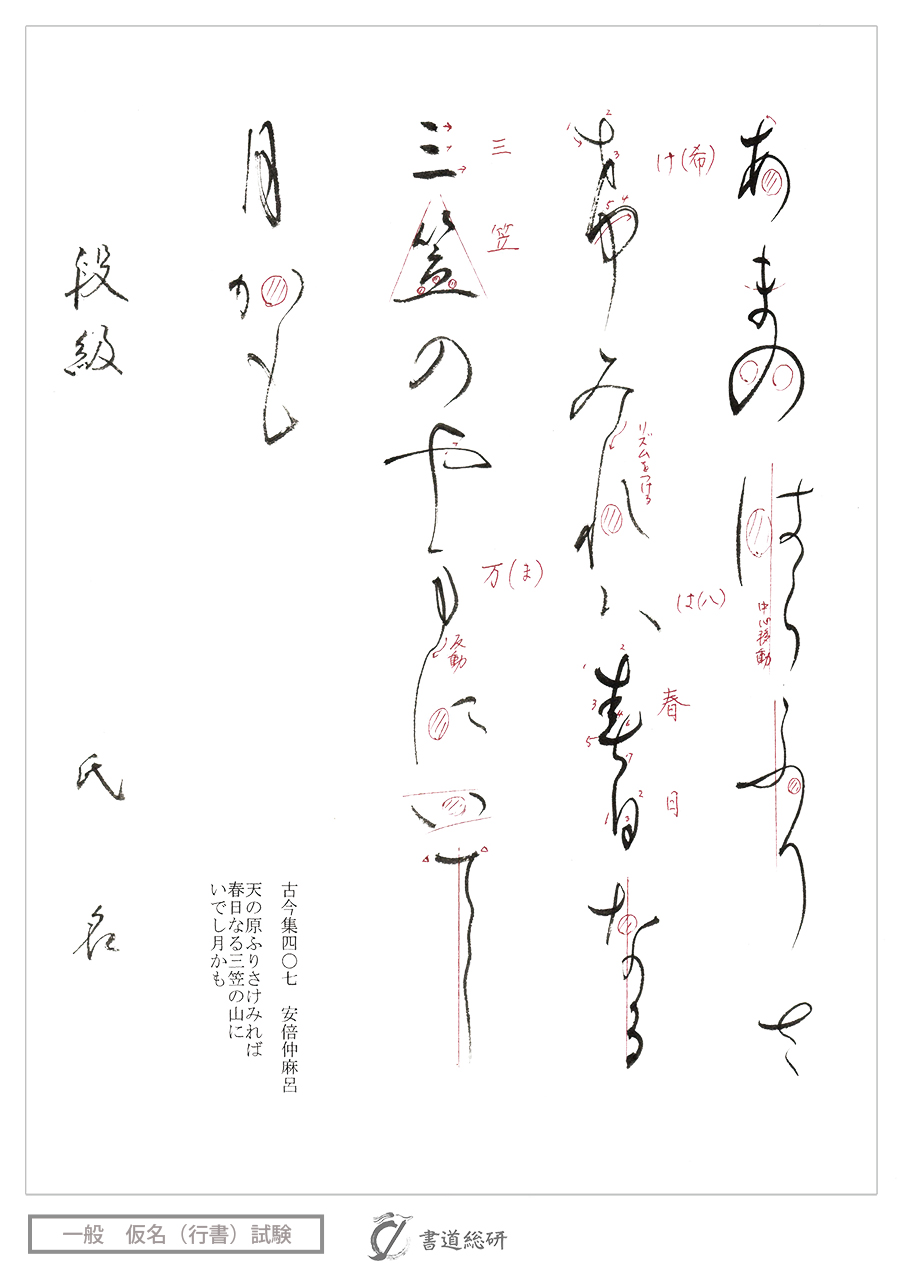 あまのはらふりさ
希みれハ春日なる
三笠のや万にいてし
月かも
段級
氏名
け(希)
リズムをつける
は(八)
春
日
三
笠
万(ま)
反動
中心移動
1
2
3
4
5
1
2
3
4
5
6
7
1
2
3
古今集四〇七 安倍仲麻呂
天の原ふりさけみれば
春日なる三笠の山に
いでし月かも
一般 仮名（行書）試験
書道総研